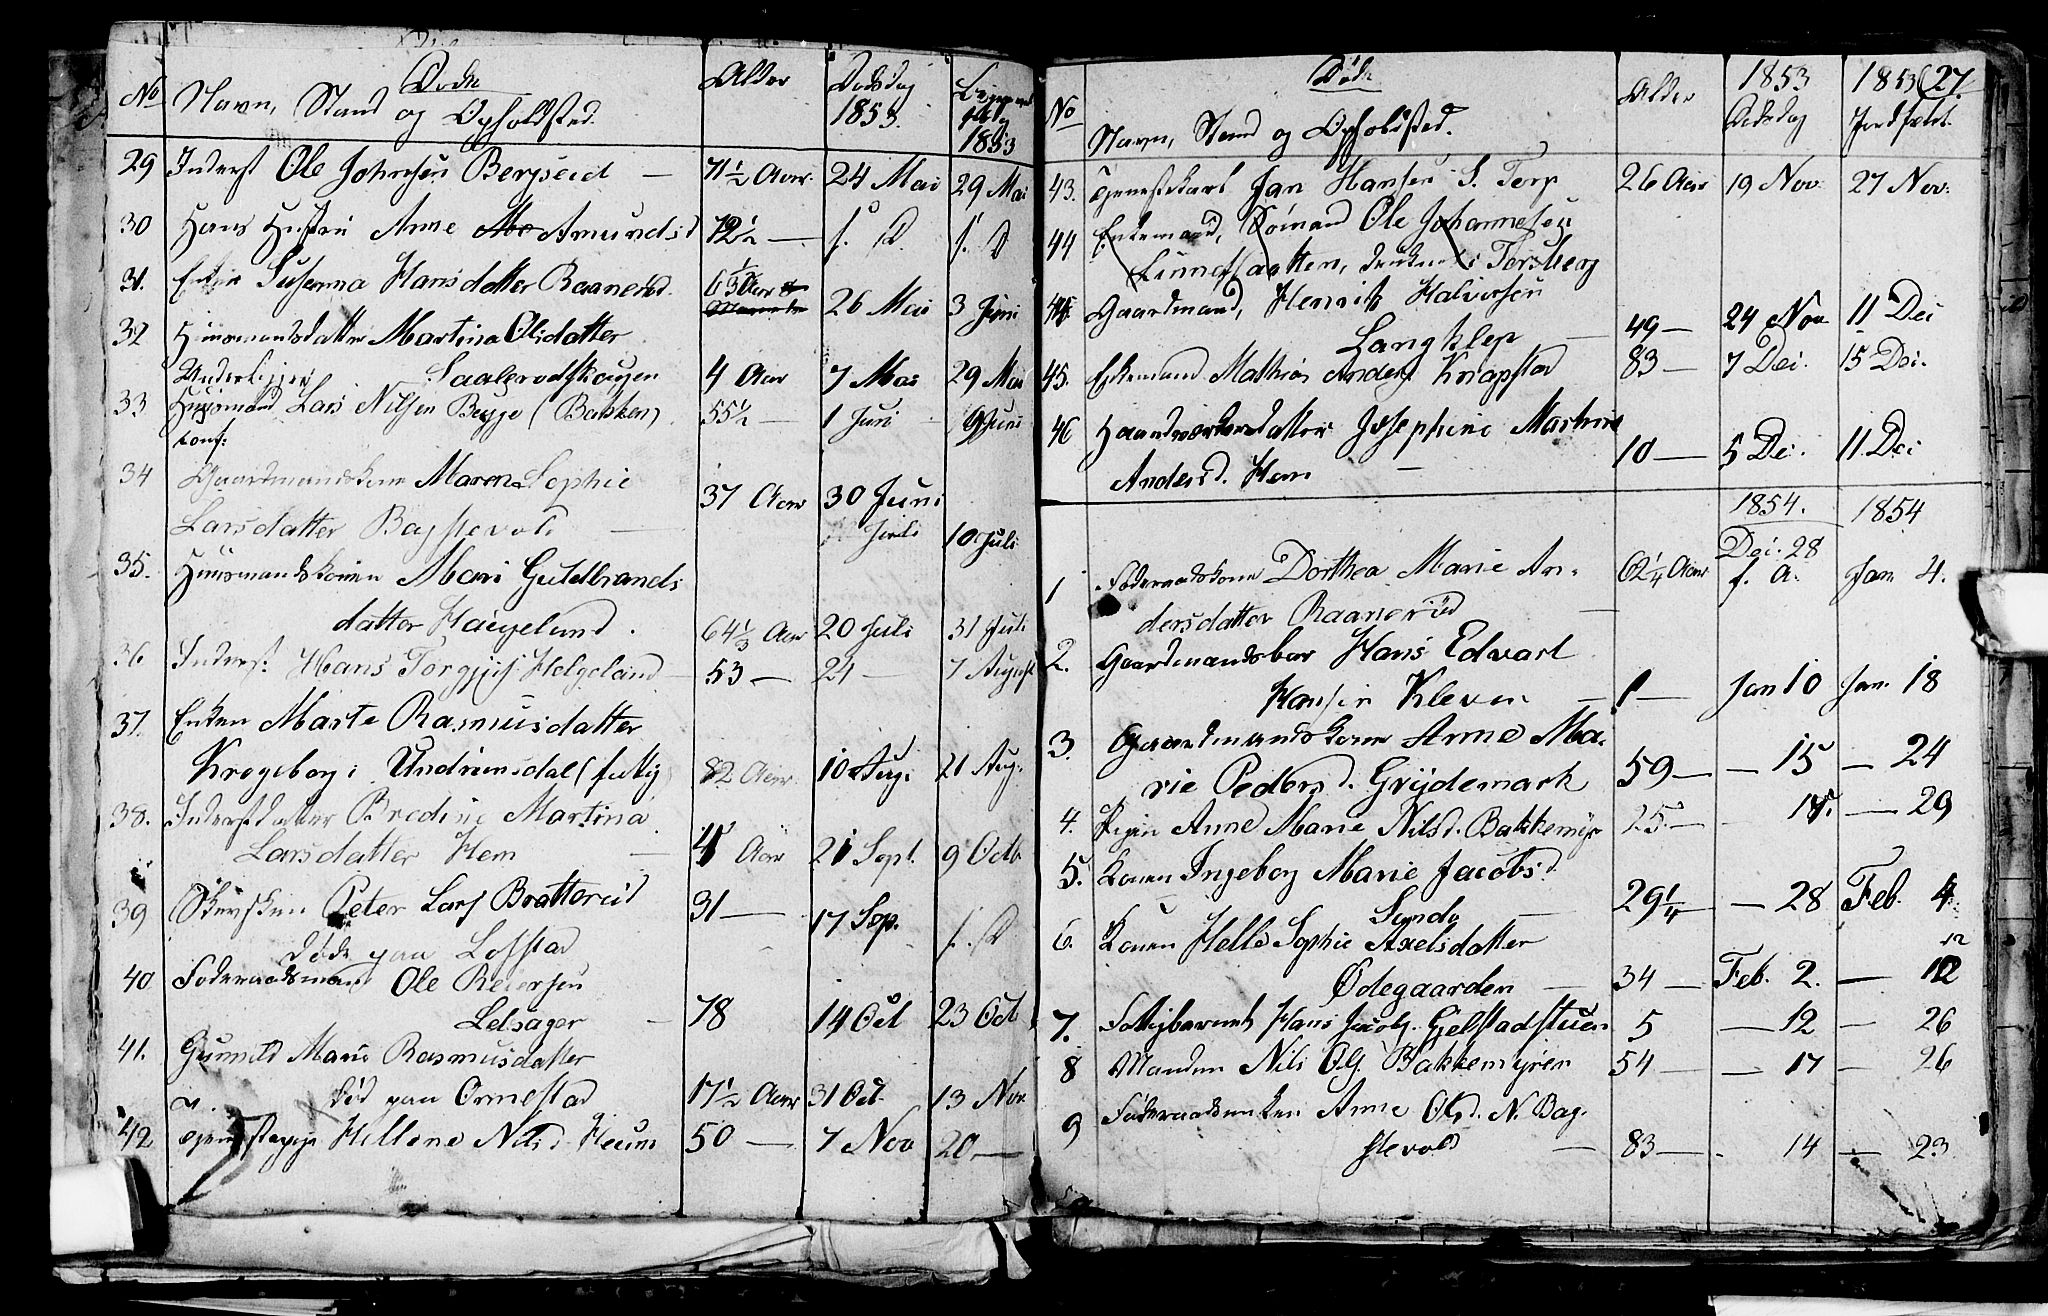 Døde
No Navn, Stand og Opholdsted. Alder Dødsdag 1853. 1853
29 Inderst Ole Johnsen Berpseid — 71 1/2 Aar 24 Mai 29 Mai
30 Hans Hustru Anne Amundsd 72 1/2 — f. D. f. D
31. Enken Susanna Hansdatter Raanerød 63 1/2 Aar 26 Mai 3 Juni
32 Huusmandsdatter Martina Olsdatter
Saalerødskougen 4 Aar 7 Mai 29 Mai
33 Huusmand Lars Nilsen Bugge (Bakken) 55 1/2 — 1 Juni 9 Juni
34 Gaardmandskone Maren Sophie 37 Aar 30 Juni
Larsdatter Bagstevold — Juli 10 Juli
35. Huusmandskonen Mari Gulelbrands
datter Haugelund. 64 1/3 Aar 20 Juli 31 Juli
36 Inderst Hans Torgjus. Helgeland — 53 — 24 — 7 August
37. Enken Marte Rasmusdatter
Krogeborg i Undrumsdal (fattig) 82 Aar 10 Aug: 21 Aug.
38. Inderstdatter Bredine Martina
Larsdatter Hem — 4 Aar 21 Sept. 9 Octb
39 Peter Lars Brattereid 31 — 17 Sep. f. D
døde paa Lofstad
40 Føderaadsmand Ole Reiersen
Lelsager — 78 14 Oct 23 Oct
41. Gunnild Marie Rasmusdatter
død paa Ormestad 17 1/2 Aar 31 Oct. 13 Nov
42 Tjenestepige Hellene Nilsd. Heum 50 — 7 Nov 20 —
Døde 27.
No Navn, Stand og Opholdsted. Alder 1853 Dødsdag 1853 Jordfæstet.
43. Tjenestekarl Jan Hansen S. Torp 26 Aar 19 Nov. 27 Nov:
44 Enkemand, Sømand Ole Johannesen
Linnestadtten, druknet i Torsberg
Gaardmand, Henrik Halvorsen
Langklep — 49 — 24 Nov 11 Dec
45. Enkemand Mathias Anders Knapstad 83 — 7 Dec. 15 Dec.
46 Haandværkerdatter Josephine Martine
Andersd. Hem — 10 — 5 Dec. 11 Dec
1854. 1854
1 Føderaadskone Dorthea Marie An-
dersdatter Raanerød — 62 1/4 Aar Dec. 28 f. A. Jan 4.
2. Gaardmandsbarn Hans Edvart
Hansen Kleven — 1 — Jan 10 Jan. 18
3. Gaardmandskone Anne Ma-
rie Pedersd. Grydemark 59 — — 15 — 24
4. Pigen Anne Marie Nilsd. Bakkemyr 25 — — 15. — 29
5. Konen Ingeborg Marie Jacobsd.
Sende — 29 1/4 — — 28 Feb. 4
6. Konen Helle Sophie Axelsdatter
Ødegaarden — 34 — Feb. 2. — 12
7. Fattigbarnet Hans Jacob. Gjelstadstuen 5 — 12 — 26
8 Manden Nils Ols. Bakkemyren 54 — — 17 — 26
9 Føderaadsenken Anne Olsd. N. Bag-
stevold — 83 — 14 — 23